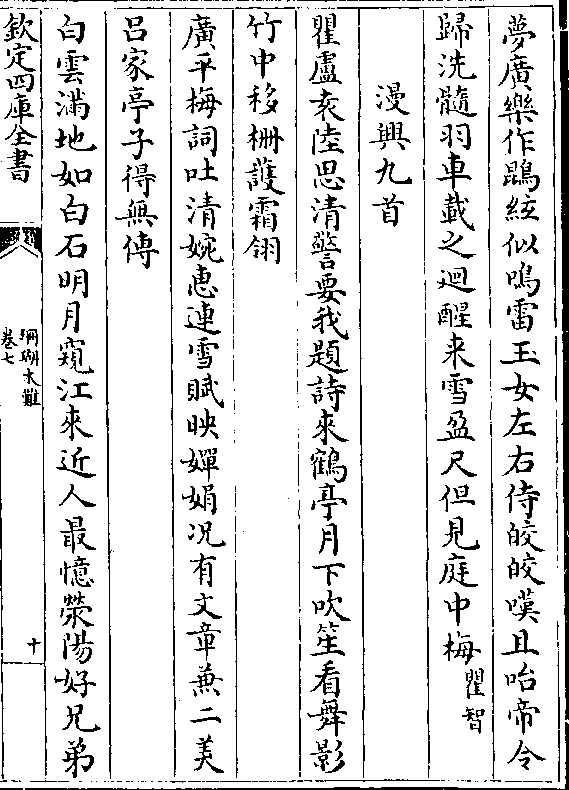 夢廣樂作鵾絃似鳴雷玉女左右侍皎皎嘆且咍帝令
歸洗髓羽車載之迴醒来雪盈尺但見庭中梅瞿智
漫興九首
瞿盧袁陸思清警要我題詩來鶴亭月下吹笙看舞影
竹中移栅護霜翎
廣平梅詞吐清婉惠連雪賦映嬋娟况有文章兼二美
吕家亭子得無傳
白雲滿地如白石明月窺江來近人最憶滎陽好兄弟
欽定四庫全書
珊瑚木難
卷七
十